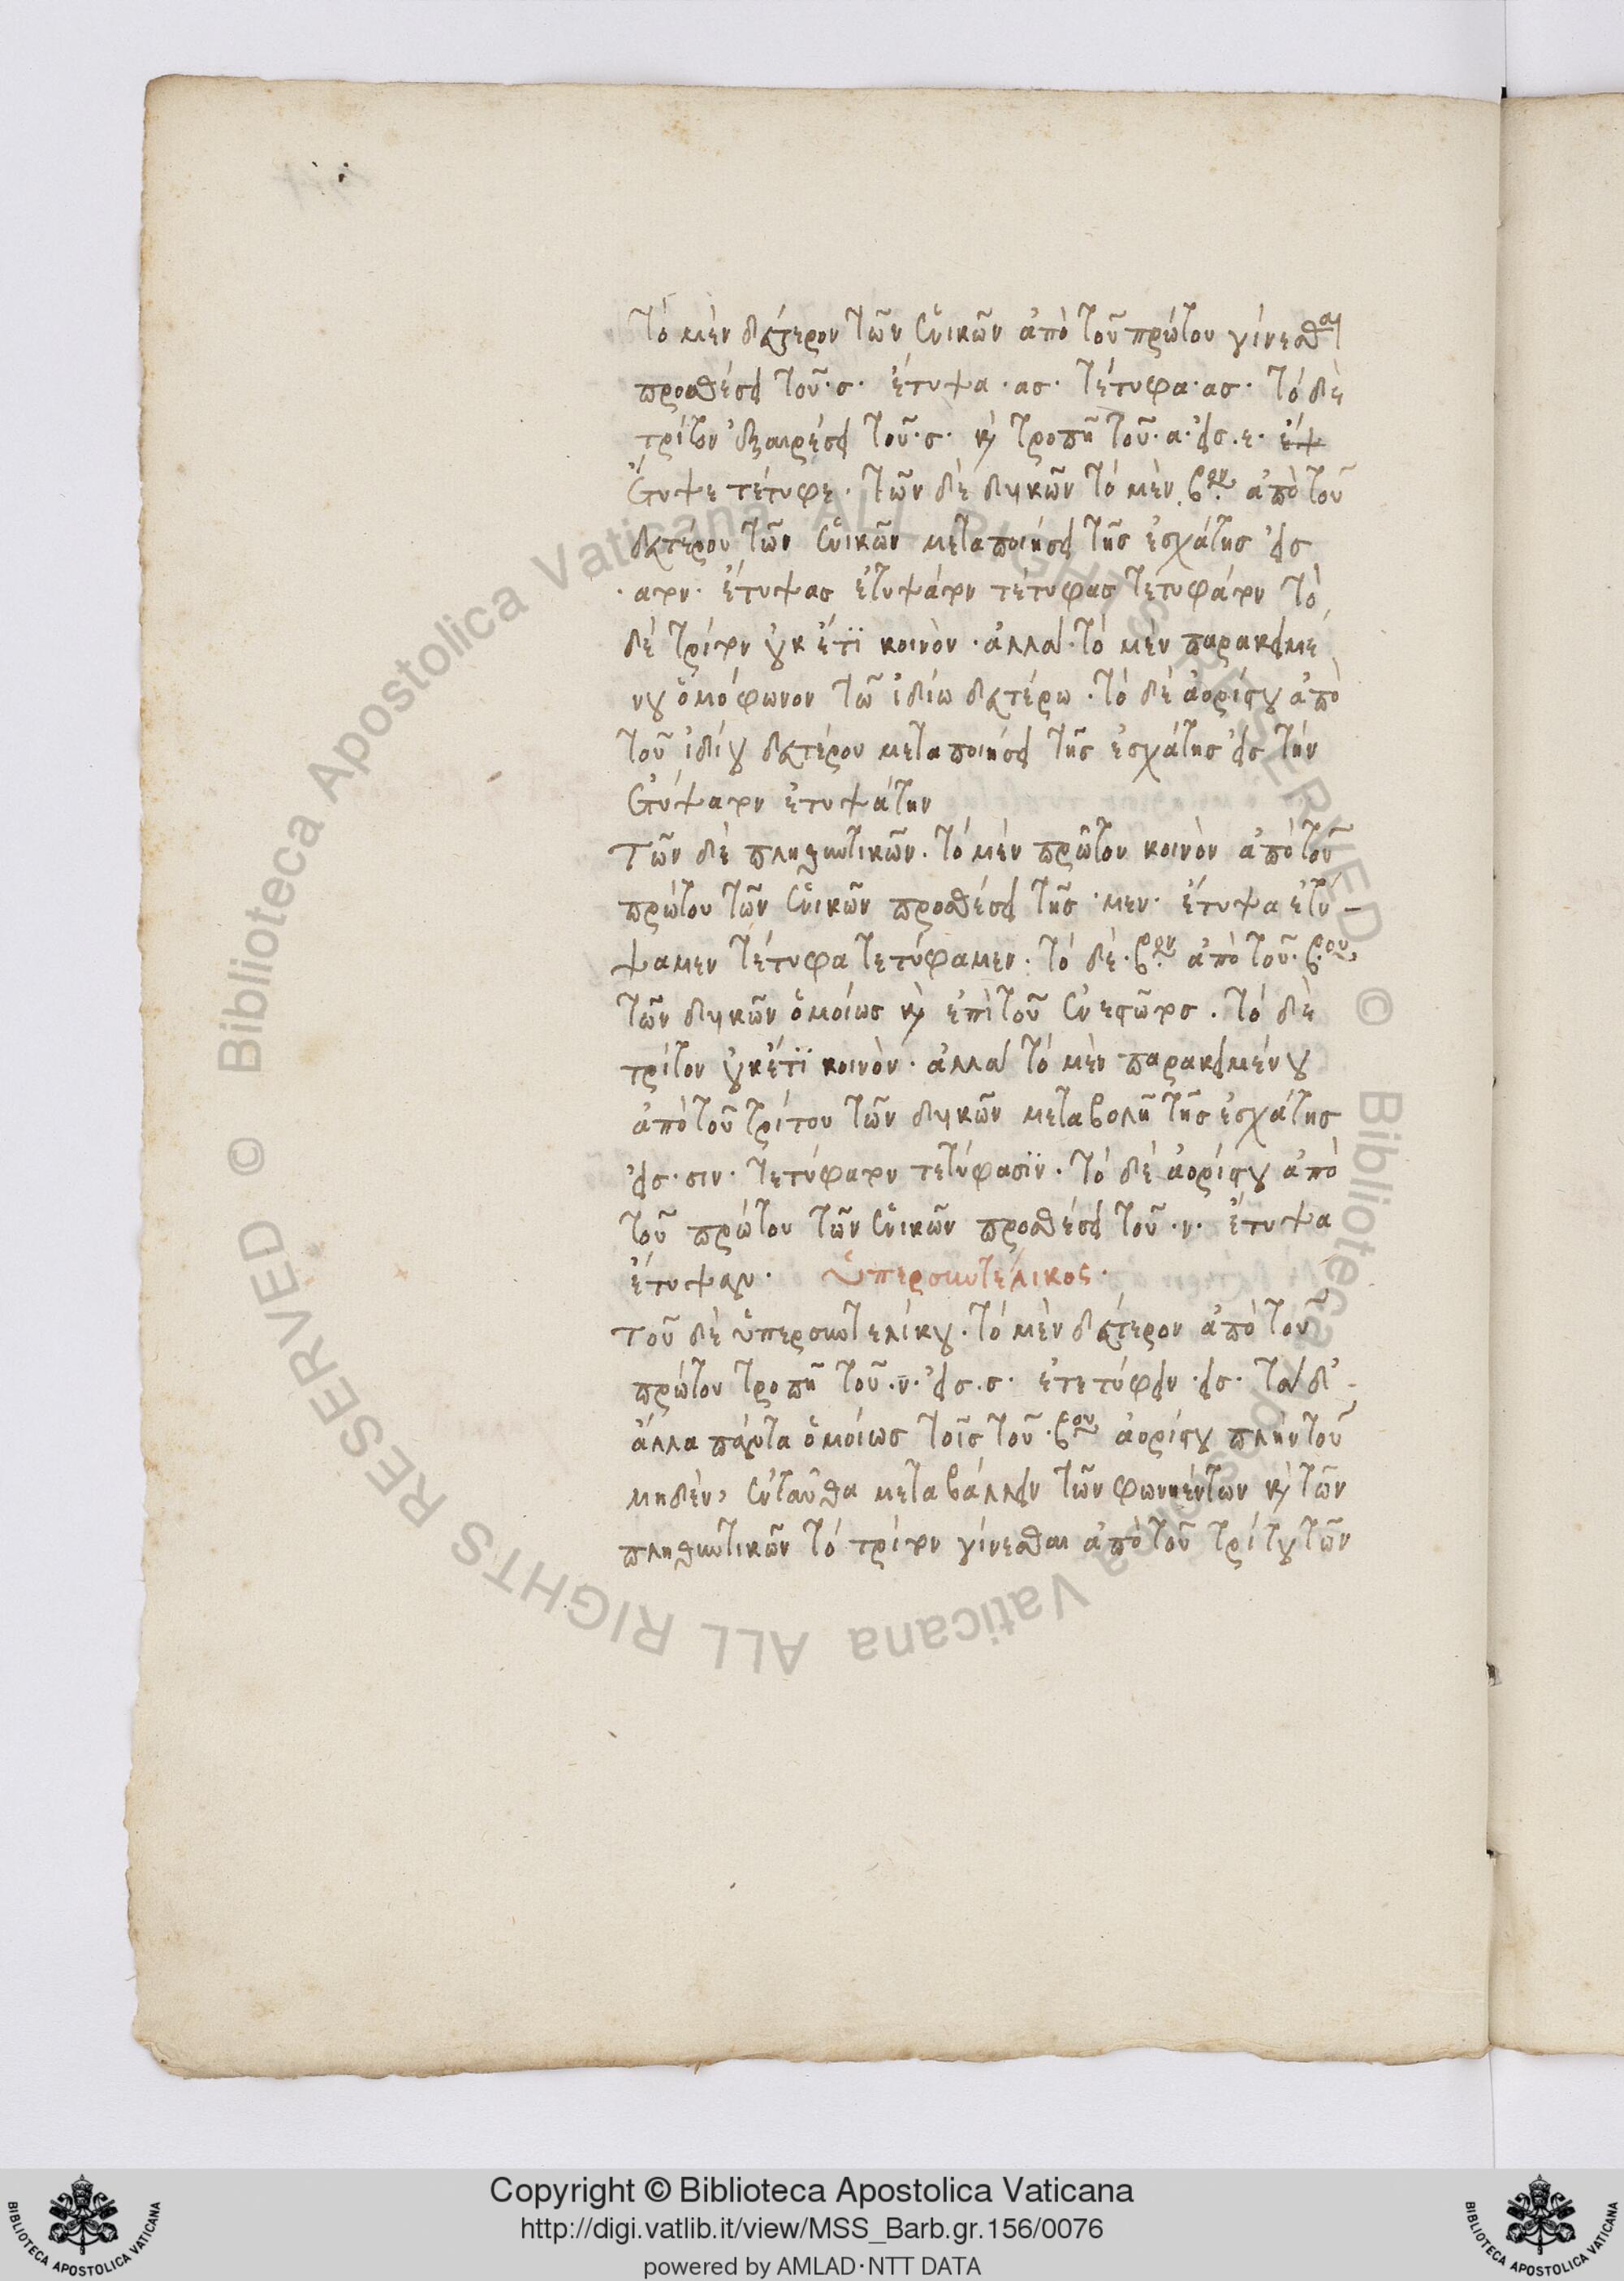 τὸ μὲν δεύτερον τῶν ἑνικῶν ἀπὸ τοῦ πρώτου γίνεσθαι
προσθέσει τοῦ·σ· ἔτυψα·ας· τέτυφα·ας· τὸ δὲ
τρίτον ἐξαιρέσει τοῦ·σ· καὶ τροπῇ τοῦ·α·εἰς·ε·
ἔτυψε τέτυφε· τῶν δὲ δυικῶν τὸ μὲν βον ἀπὸ τοῦ
δευτέρου τῶν ἑνικῶν μεταποιήσει τῆς ἐσχάτης εἰς
·ατον· ἔτυψας ἐτυψάτον τέτυφας τετυφάτον τὸ
δὲ τρίτον οὐκ έτϊ κοινὸν· ἀλλὰ·τὸ μὲν παρακειμέ
νου ὁμόφωνον τῶ ἰδίω δευτέρω· τὸ δὲ ἀορίστου ἀπὸ
τοῦ ἰδίου δευτέρου μεταποιήσει τῆς ἐσχάτης εἰς τὴν
ἐτύψατον ἐτυψάτην
τῶν δὲ πληθυντικῶν· τὸ μὲν πρῶτον κοινὸν ἀπὸ τοῦ
πρώτου τῶν ἑνικῶν προσθέσει τῆς ·μεν· ἔτυψα ἐτύ-
ψαμεν τέτυφα τετύφαμεν· τὸ δὲ·βρον ἀπὸ τοῦ·βρου
τῶν δυικῶν ὁμοίως καὶ ἐπὶ τοῦ ἐνεστῶτος· τὸ δὲ
τρίτον οὐκέτϊ κοινὸν· ἀλλὰ τὸ μὲν παρακειμένου
ἀπὸ τοῦ τρίτου τῶν δυικῶν μεταβολῆ τῆς ἐσχάτης
εἰς·σιν· τετύφατον τετύφασϊν· τὸ δὲ ἀορίστου ἀπὸ
τοῦ πρώτου τῶν ἑνικῶν προσθέσει τοῦ·ν· ἔτυψα
ἔτυψαν· Ὑπερσυντέλικος·
τοῦ δὲ ὑπερσυντελίκου· τὸ μὲν δεύτερον ἀπὸ τοῦ
πρώτου τροπῇ τοῦ·ν·εἰς·σ· ἐτετύφειν·εις· τὰ δ'
ἄλλα πάντα ὁμοίως τοῖς τοῦ·βου ἀορίστου πλὴν τοῦ
μηδὲν, ἐνταῦθα μεταβάλλειν τῶν φωνηέντων καὶ τῶν
πληθυντικῶν τὸ τρίτον γίνεσθαι ἀπὸ τοῦ τρίτου τῶν
Copyright © Biblioteca Apostolica Vaticana
http://digi.vatlib.it/view/MSS_Barb.gr.156/0076
powered by AMLAD·NTT DATA
© Biblioteca Apostolica Vaticana ALL RIGHTS RESERVED
© Biblioteca Apostolica Vaticana ALL RIGHTS RESERVED
BIBLIOTECA APOSTOLICA VATICANA
BIBLIOTECA APOSTOLICA VATICANA